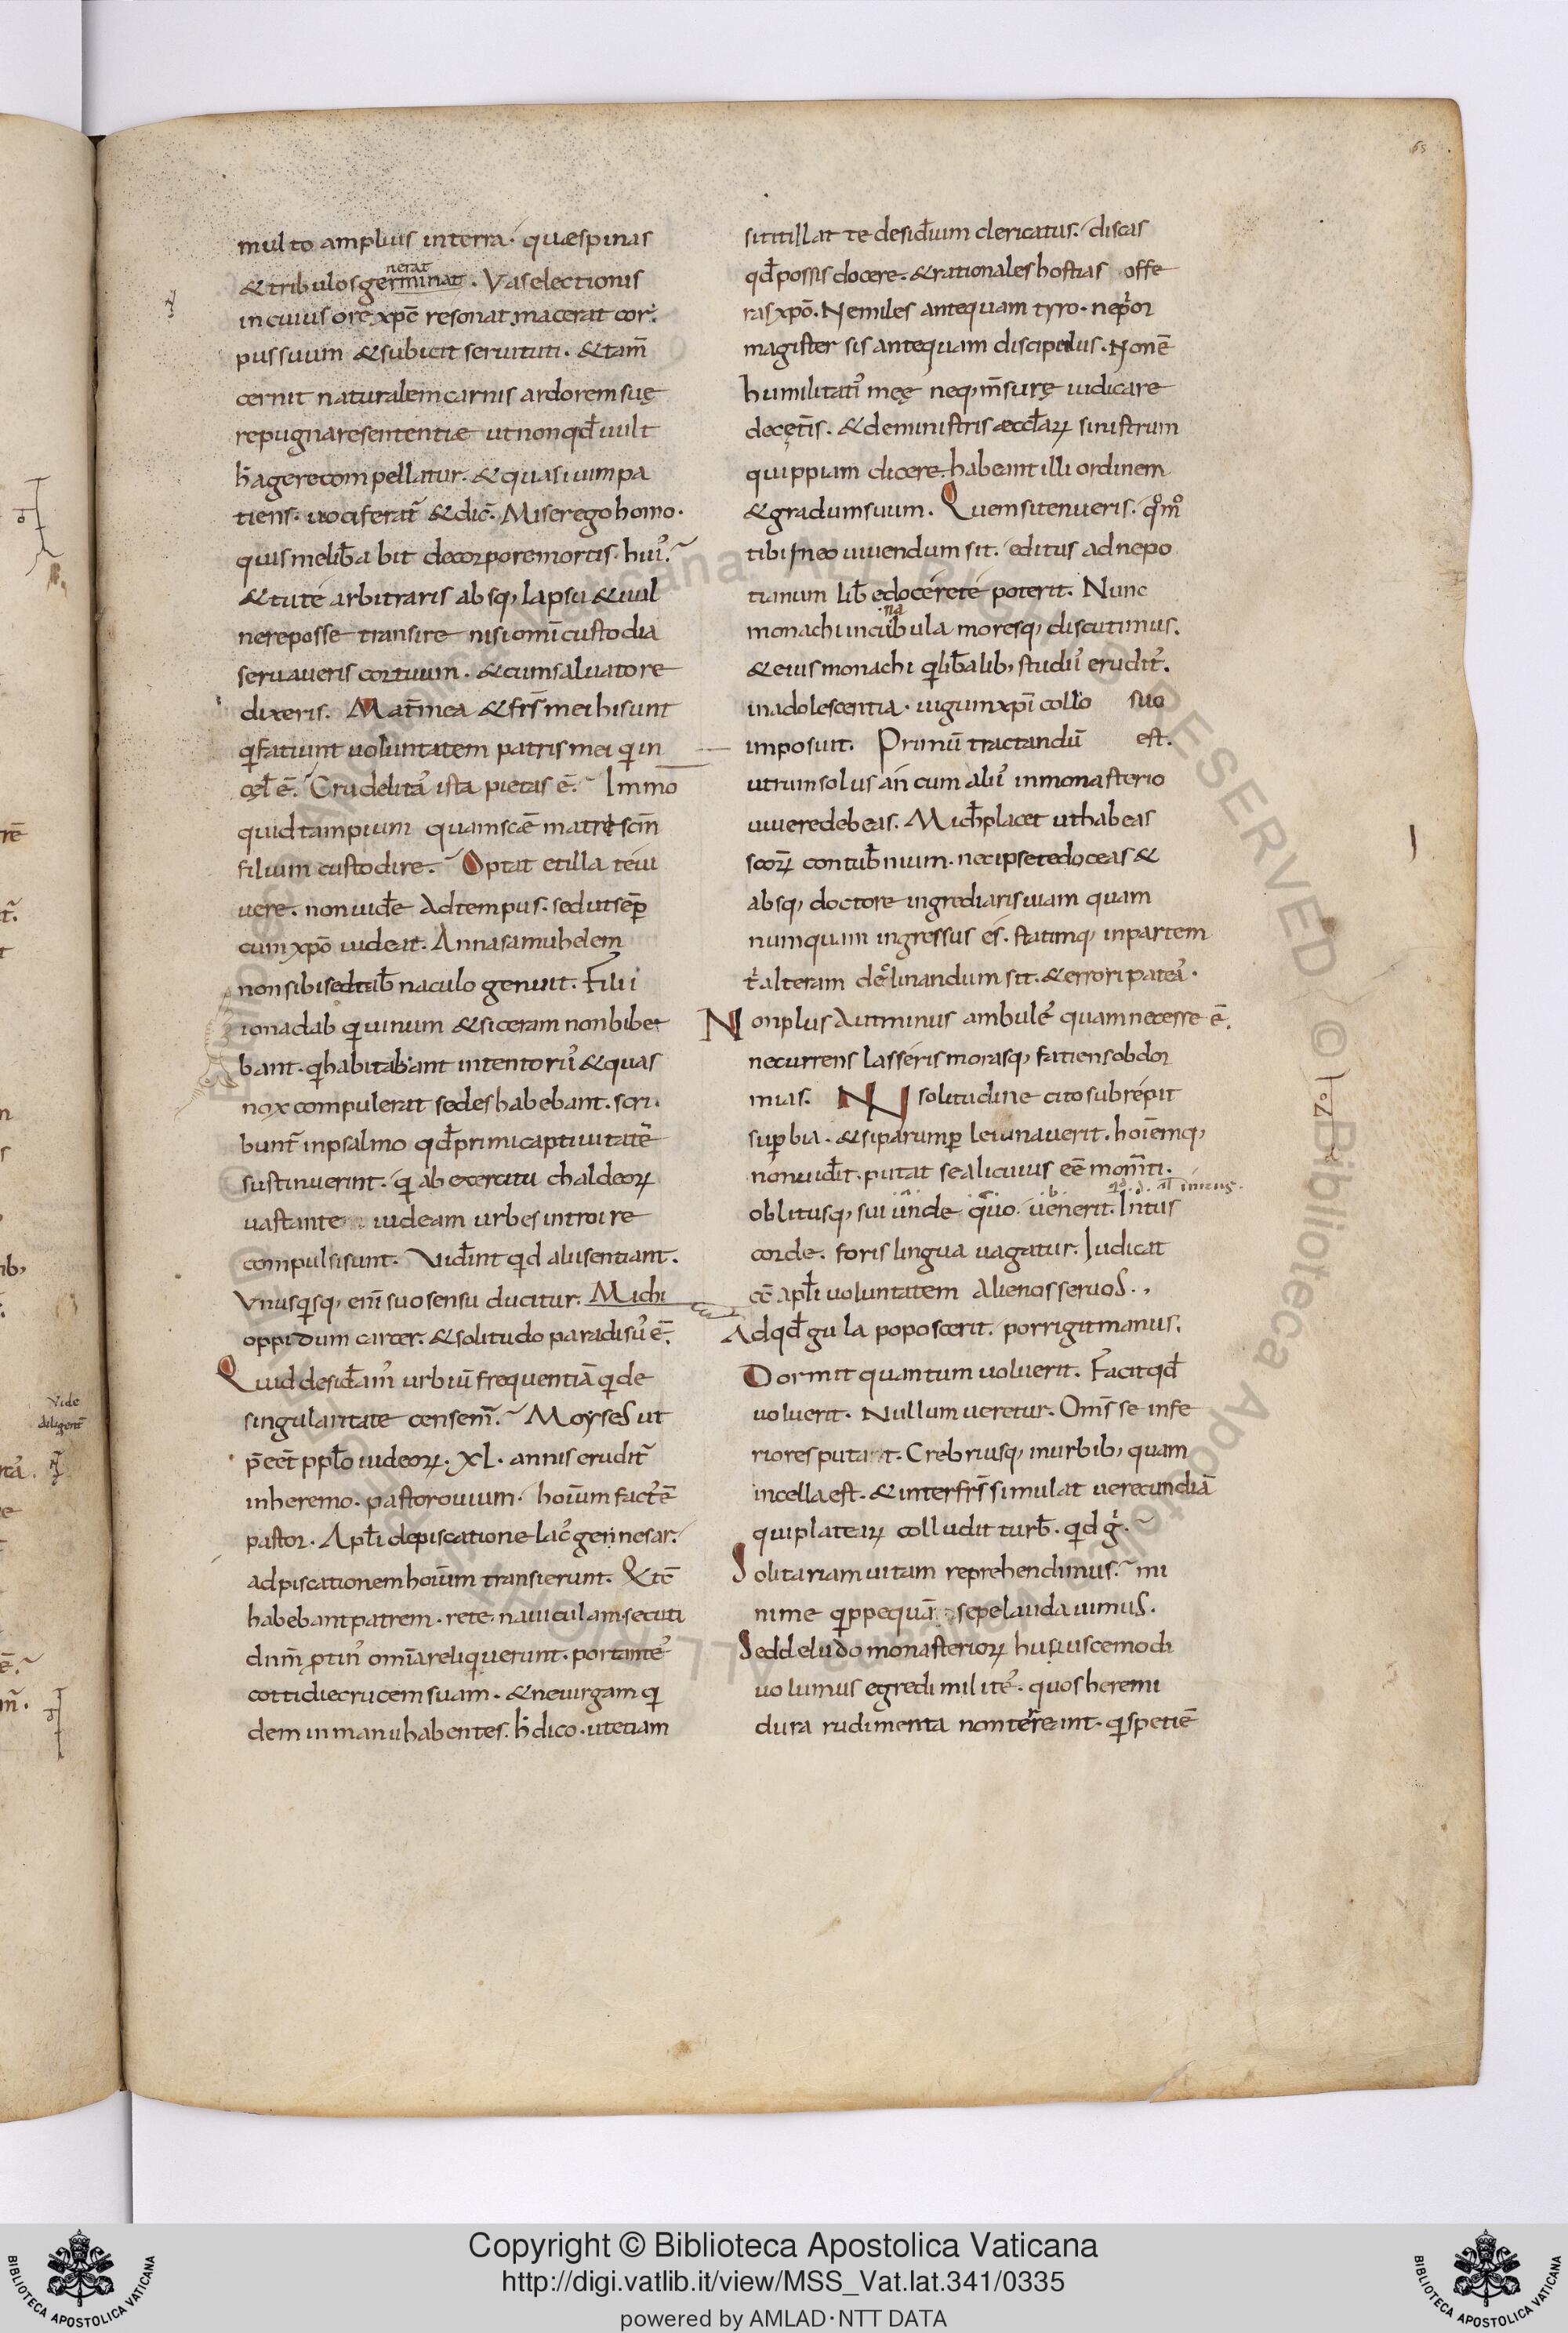 65
multo amplius in terra. quæ spinas
& tribulos germinat. Vas electionis
nerat
in cuius ore xp̄c resonat macerat cor
pus suum & subicit seruituti. & tam̄
cernit naturalem carnis ardorem suę
repugnare sententiæ ut non qđ uult
h agere compellatur. & quasi uim pa
tiens. uociferat̄ & dic̄. Miser ego homo.
quis me lib̄abit de corpore mortis hui᾽.
& tu te arbitraris absq, lapsu & uul
nere posse transire nisi om̄i custodia
seruaueris cor tuum. & cum saluatore
dixeris. Mat̄ mea & fr̄s mei hi sunt
qi fatiunt uoluntatem patris mei qi in
cęl ē. Crudelita᾽ ista pietas ē. Immo
quid tam pium quam sc̄e matri sc̄m
filium custodire. Optat et illa te ui
uere. non uide᷒e ad tempus. sed ut sēp
cum xp̄o uideat. Anna samuhelem
non sibi sed tab̄naculo genuit. Filii
ionadab qi uinum & siceram non bibe
bant. qi habitabant in tentoriu᾽ & quas
nox compulerat sedes habebant. scri
bunt̄ in psalmo qđ primi captiuitatē
sustinuerint. qi ab exercitu chaldeoꝝ
uastante iudeam urbes introire
compulsi sunt. Vid̄int qid alii sentiant.
Vnusqisq, eni᷒ suo sensu ducitur. Michi
oppidum carcer. & solitudo paradisu᾽ ē.
Quid desid̄am᾽ urbiū frequentiā qi de
singularitate censem̄. Moyses ut
p̄ēēt ppl̄o iudeoꝝ. xl. annis erudit̄
in heremo. pastor ouium. hoi᷒um fact᾽ ē
pastor. Apl̄i de piscatione lac᾽ gennesar.
ad piscationem hoi᷒um transierunt. & tc̄
habebant patrem. rete. nauiculam. secuti
dn̄m ꝓtin᾽ om̄ia reliquerunt. portante᾽
cottidie crucem suam. & ne uirgam qi
dem in manu habentes. h dico. ut etiam
si titillat te desid̄ium clericatus. discas
qđ possis docere. & rationales hostias offe
ras xp̄o. Ne miles antequam tyro. ne pi᷒or
magister sis antequam discipulus. Non ē
humilitati᾽ męę neq, m̄surę iudicare
de cęt̄is. & de ministris æccl̄iaꝝ sinistrum
quippiam dicere. habeant illi ordinem
& gradum suum. Quem si tenueris. qo᷒mo᷒
tibi in eo uiuendum sit. editus ad nepo
tianum lib̄ e docere te poterit. Nunc
monachi incu᷒bula moresq, discutimus.
na
& eius monachi qi lib̄alib, studiu᾽ erudit᾽.
in adolescentia. iugum xp̄i collo suo
imposuit. Primū tractandū est.
utrum solus an cum aliu᾽ in monasterio
uiuere debeas. Mich̄ placet ut habeas
scōꝝ contub̄nium. nec ipse te doceas &
absq, doctore ingrediaris uiam quam
numquam ingressus es. statimq, in partem
t alteram declinandum sit. & errori patea᾽.
Non plus aut minus ambule᾽ quam necesse ē.
ne currens lasseris morasq, fatiens obdor
mias. IN solitudine cito subrepit
suꝑbia. & si parumꝑ ieiunauerit. hoi᷒emq,
non uid̄it. putat se alicuius eē mom̄ti.
oblitusq, sui unde quo uenerit. Intus
corde. foris lingua uagatur. Iudicat
cc̄ apl̄i uoluntatem alienos seruos.
Ad qđ gula poposcerit. porrigit manus.
Dormit quantum uoluerit. Facit qđ
uoluerit. Nullum ueretur. Om̄s se infe
riores putat. Crebriusq, in urbib, quam
in cella est. & inter fr̄s simulat uerecundiā
qui plateaꝝ colludit turb̄. qid g᷒.
Solitariam uitam reprehendimus. mi
nime qippe quā sepe laudauimus.
Sed de ludo monasterioꝝ huiuscemodi
uolumus egredi milite᾽. quos heremi
dura rudimenta non terreant. qi spetiē
Vide
diligent̄
Copyright © Biblioteca Apostolica Vaticana
http://digi.vatlib.it/view/MSS_Vat.lat.341/0335
powered by AMLAD·NTT DATA
BIBLIOTECA APOSTOLICA VATICANA
BIBLIOTECA APOSTOLICA VATICANA